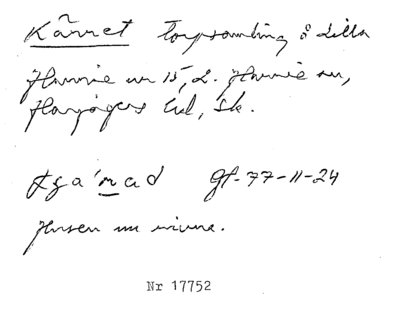 Kärret Torpsamling å Lilla
Harrie nr 15, L. Harrie sn,
Harjagers hd, Sk.
gf. 77-11-24
Husen nu rivna.
Nr 17752